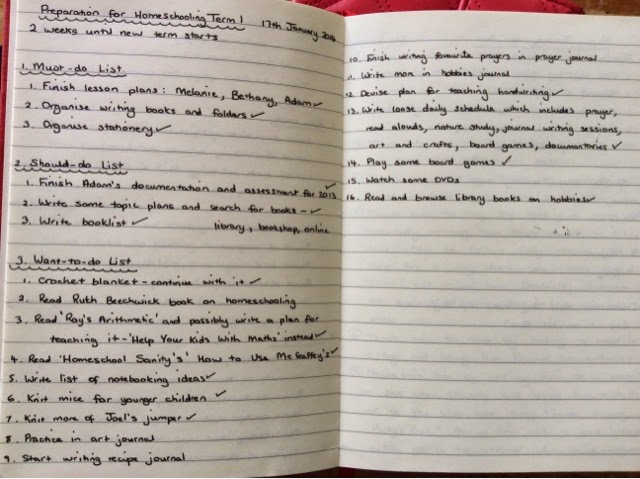 Preparation for Homeschooling Term 1 17th January 2014
2 weeks until new term starts
1. Must-do List
1. Finish lesson plans: Melanie, Bethany, Adam ✓
2. Organise writing books and folders ✓
3. Organise stationery ✓
2. Should-do List
1. Finish Adam's documentation and assessment for 2013 ✓
2. Write some topic plans and search for books - ✓
library, bookshop, online
3. Write booklist ✓
3. Want-to-do List
1. Crochet blanket - continue with it ✓
2. Read Ruth Beechwick book on homeschooling
3. Read 'Ray's Arithmetic' and possibly write a plan for
teaching it - 'Help Your Kids With Maths' instead ✓
4. Read 'Homeschool Sanity's' How to Use McGuffey's ✓
5. Write list of notebooking ideas ✓
6. Knit mice for younger children ✓
7. Knit more of Joel's jumper ✓
8. Practice in art journal
9. Start writing recipe journal
10. Finish writing favourite prayers in prayer journal
11. Write more in hobbies journal
12. Devise plan for teaching handwriting ✓
13. Write loose daily schedule which includes prayer,
read alouds, nature study, journal writing sessions,
art and crafts, board games, documentaries ✓
14. Play some board games ✓
15. Watch some DVDs
16. Read and browse library books on hobbies ✓